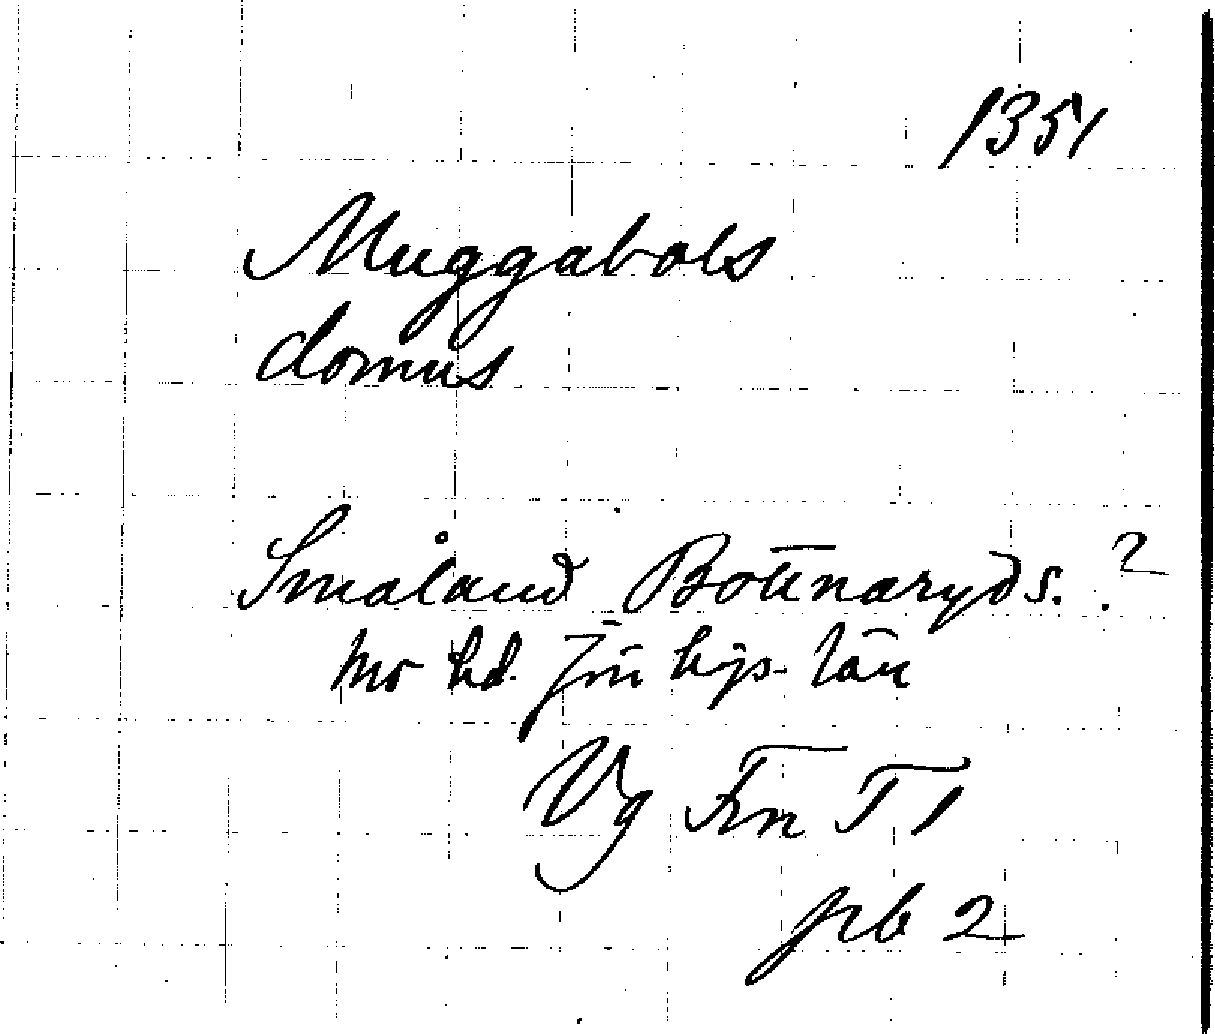 1351
Muggabols
domus
Småland Bottnaryds. ?
Mo hd. Jönköps. län
Vg Fn T 1
pb 2